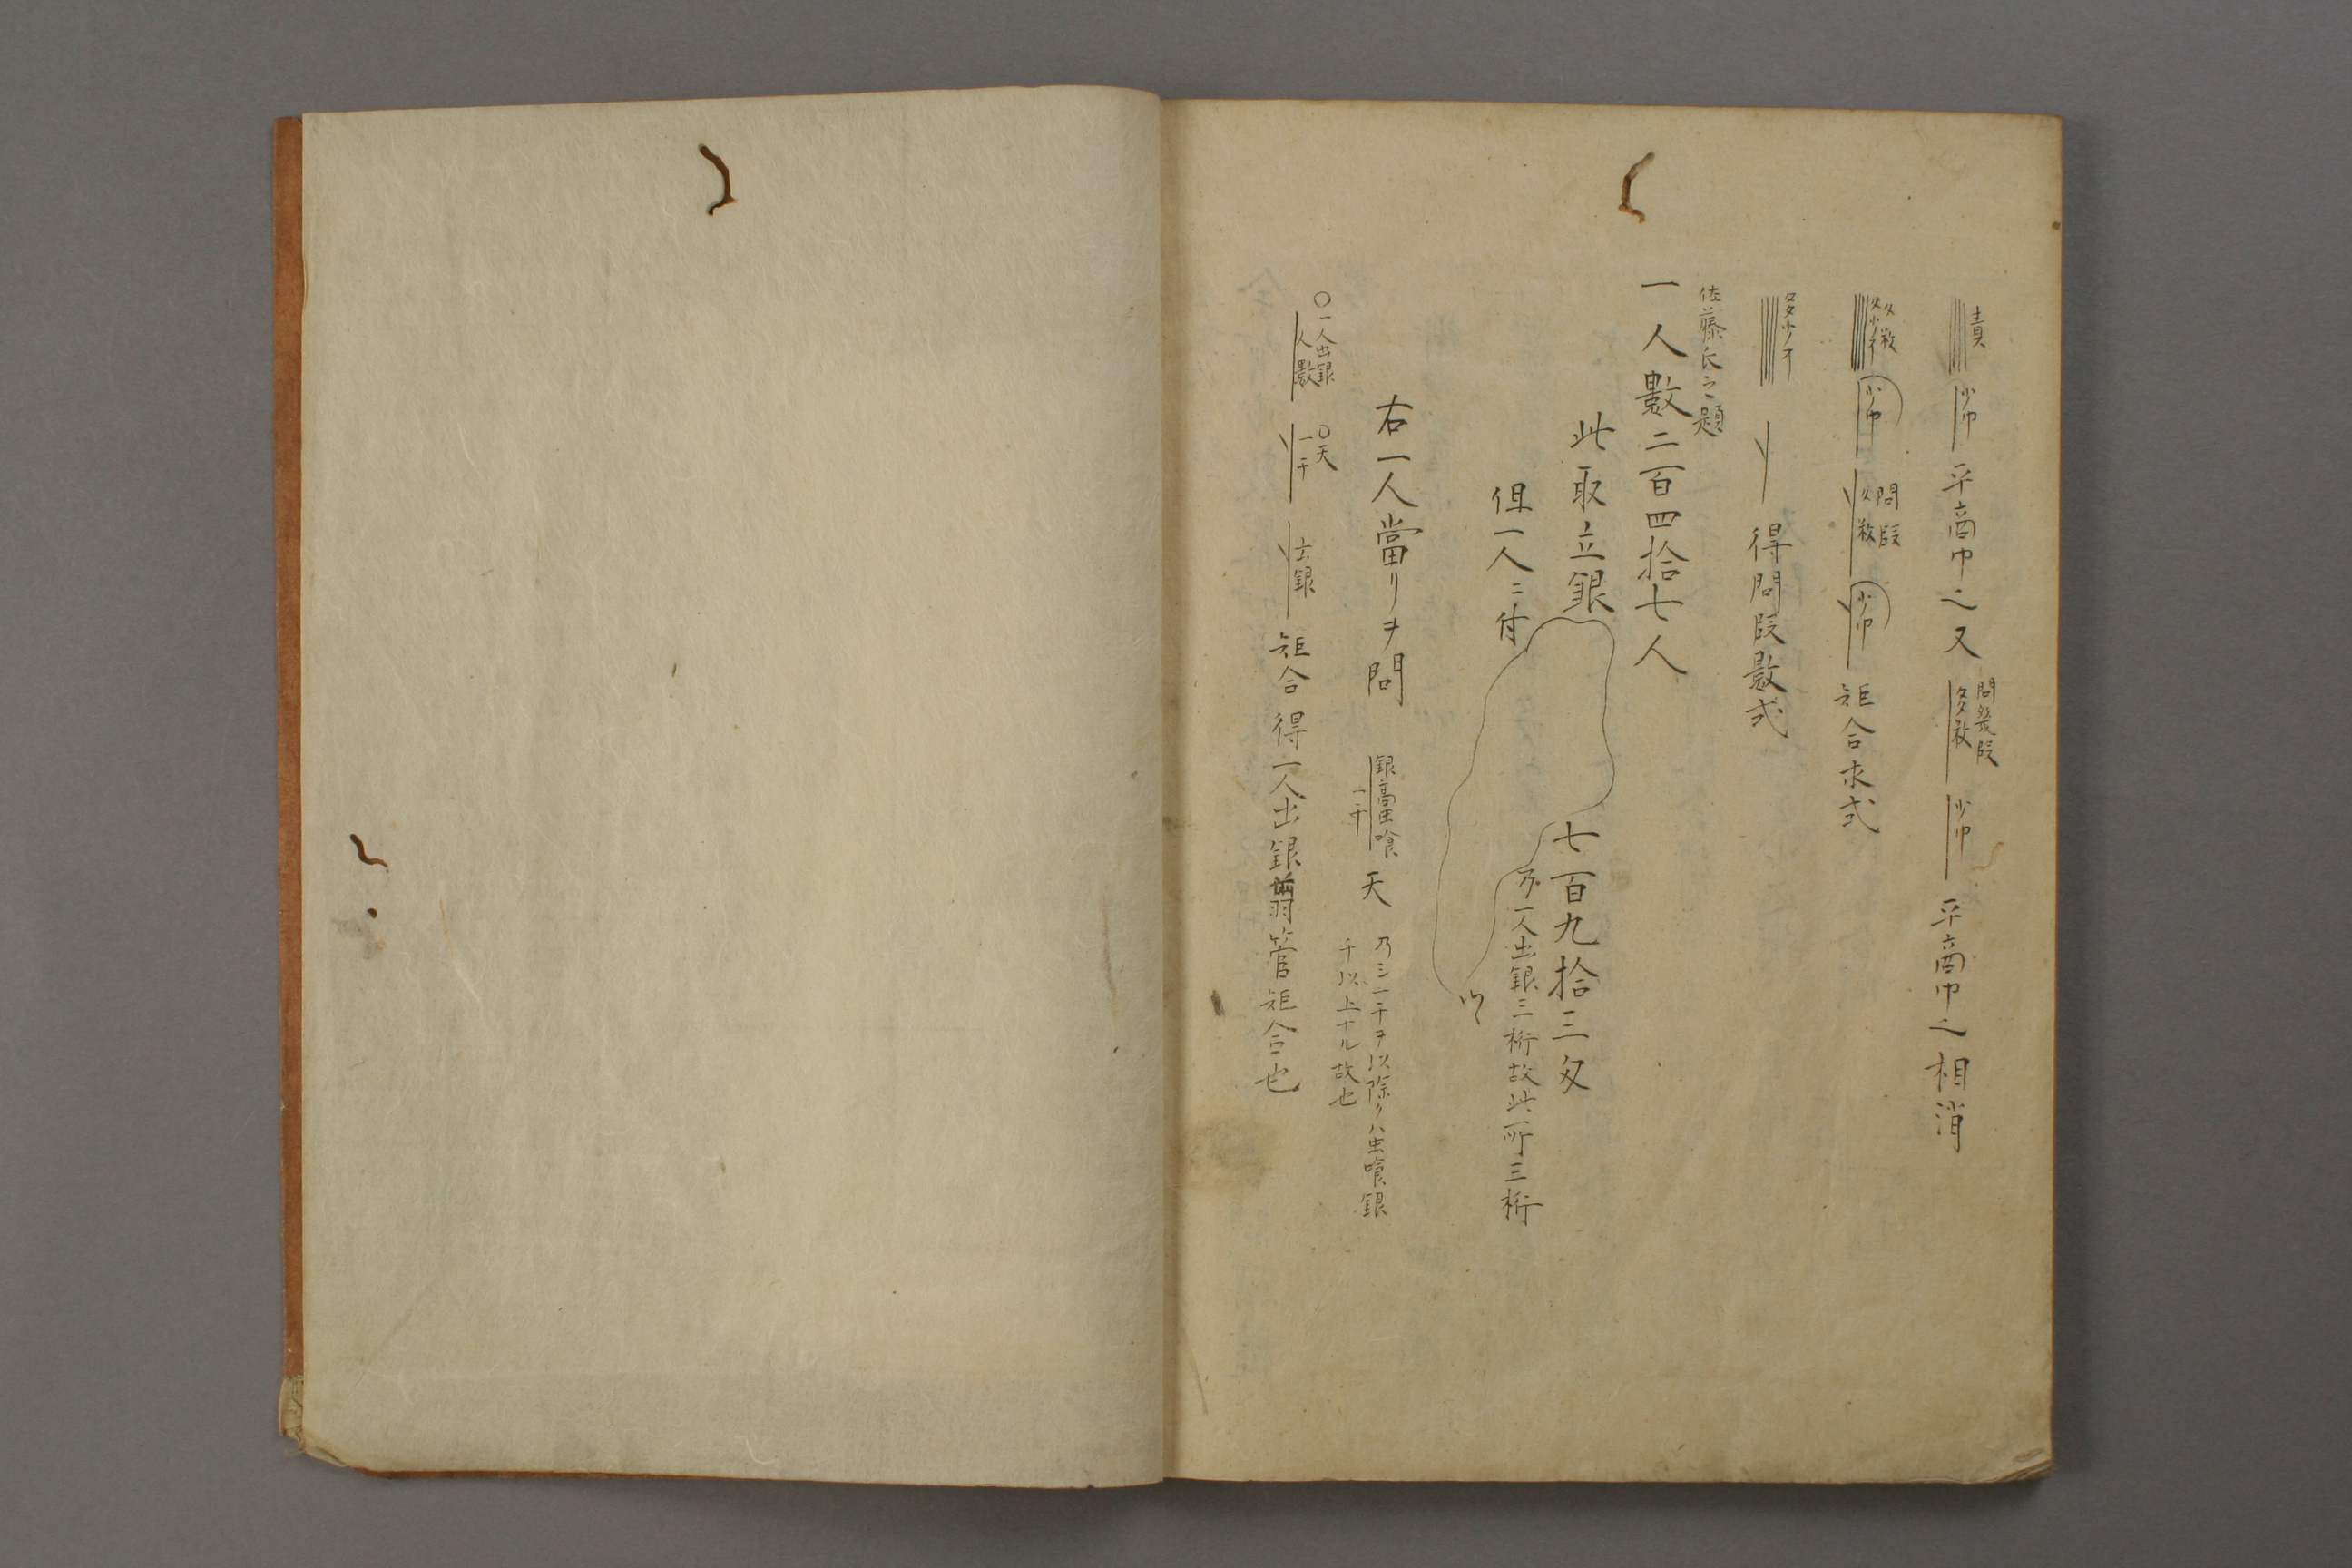 責 少巾 平商巾之又 問幾段 多敉 少巾 平商巾之相消
少巾 問段 敉 少巾 矩合求式
多少 得問段数式
佐藤氏之題
一人數二百四拾七人
此取立銀 七百九拾三匁
但一人ニ付 乃一人出銀三桁故此所三桁
右一人當リヲ問 銀高虫喰 一千 天 乃シ一千ヲ以除クハ虫喰銀
千以上ナル故也
〇一人出銀 人數 〇天 一千 玄銀 矩合 得一人出銀翦管矩合也